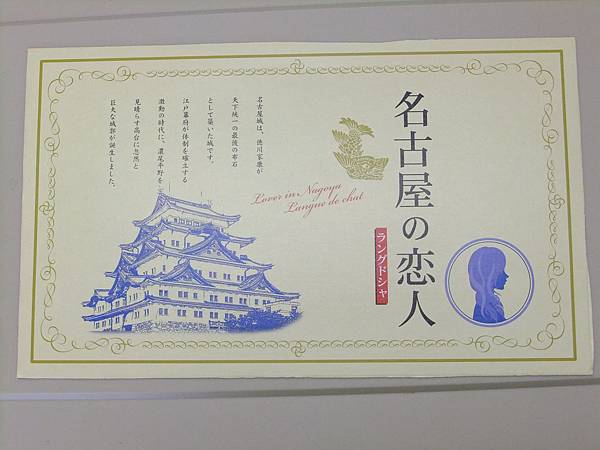 名古屋の恋人
ラングドシャ
Lover in Nagoya
Langue de chat
名古屋城は、徳川家康が
天下統一の最後の布石
として築いた城です。
江戸幕府が体制を確立する
激動の時代に、濃尾平野を
見晴らす高台に忽然と
巨大な城郭が誕生しました。